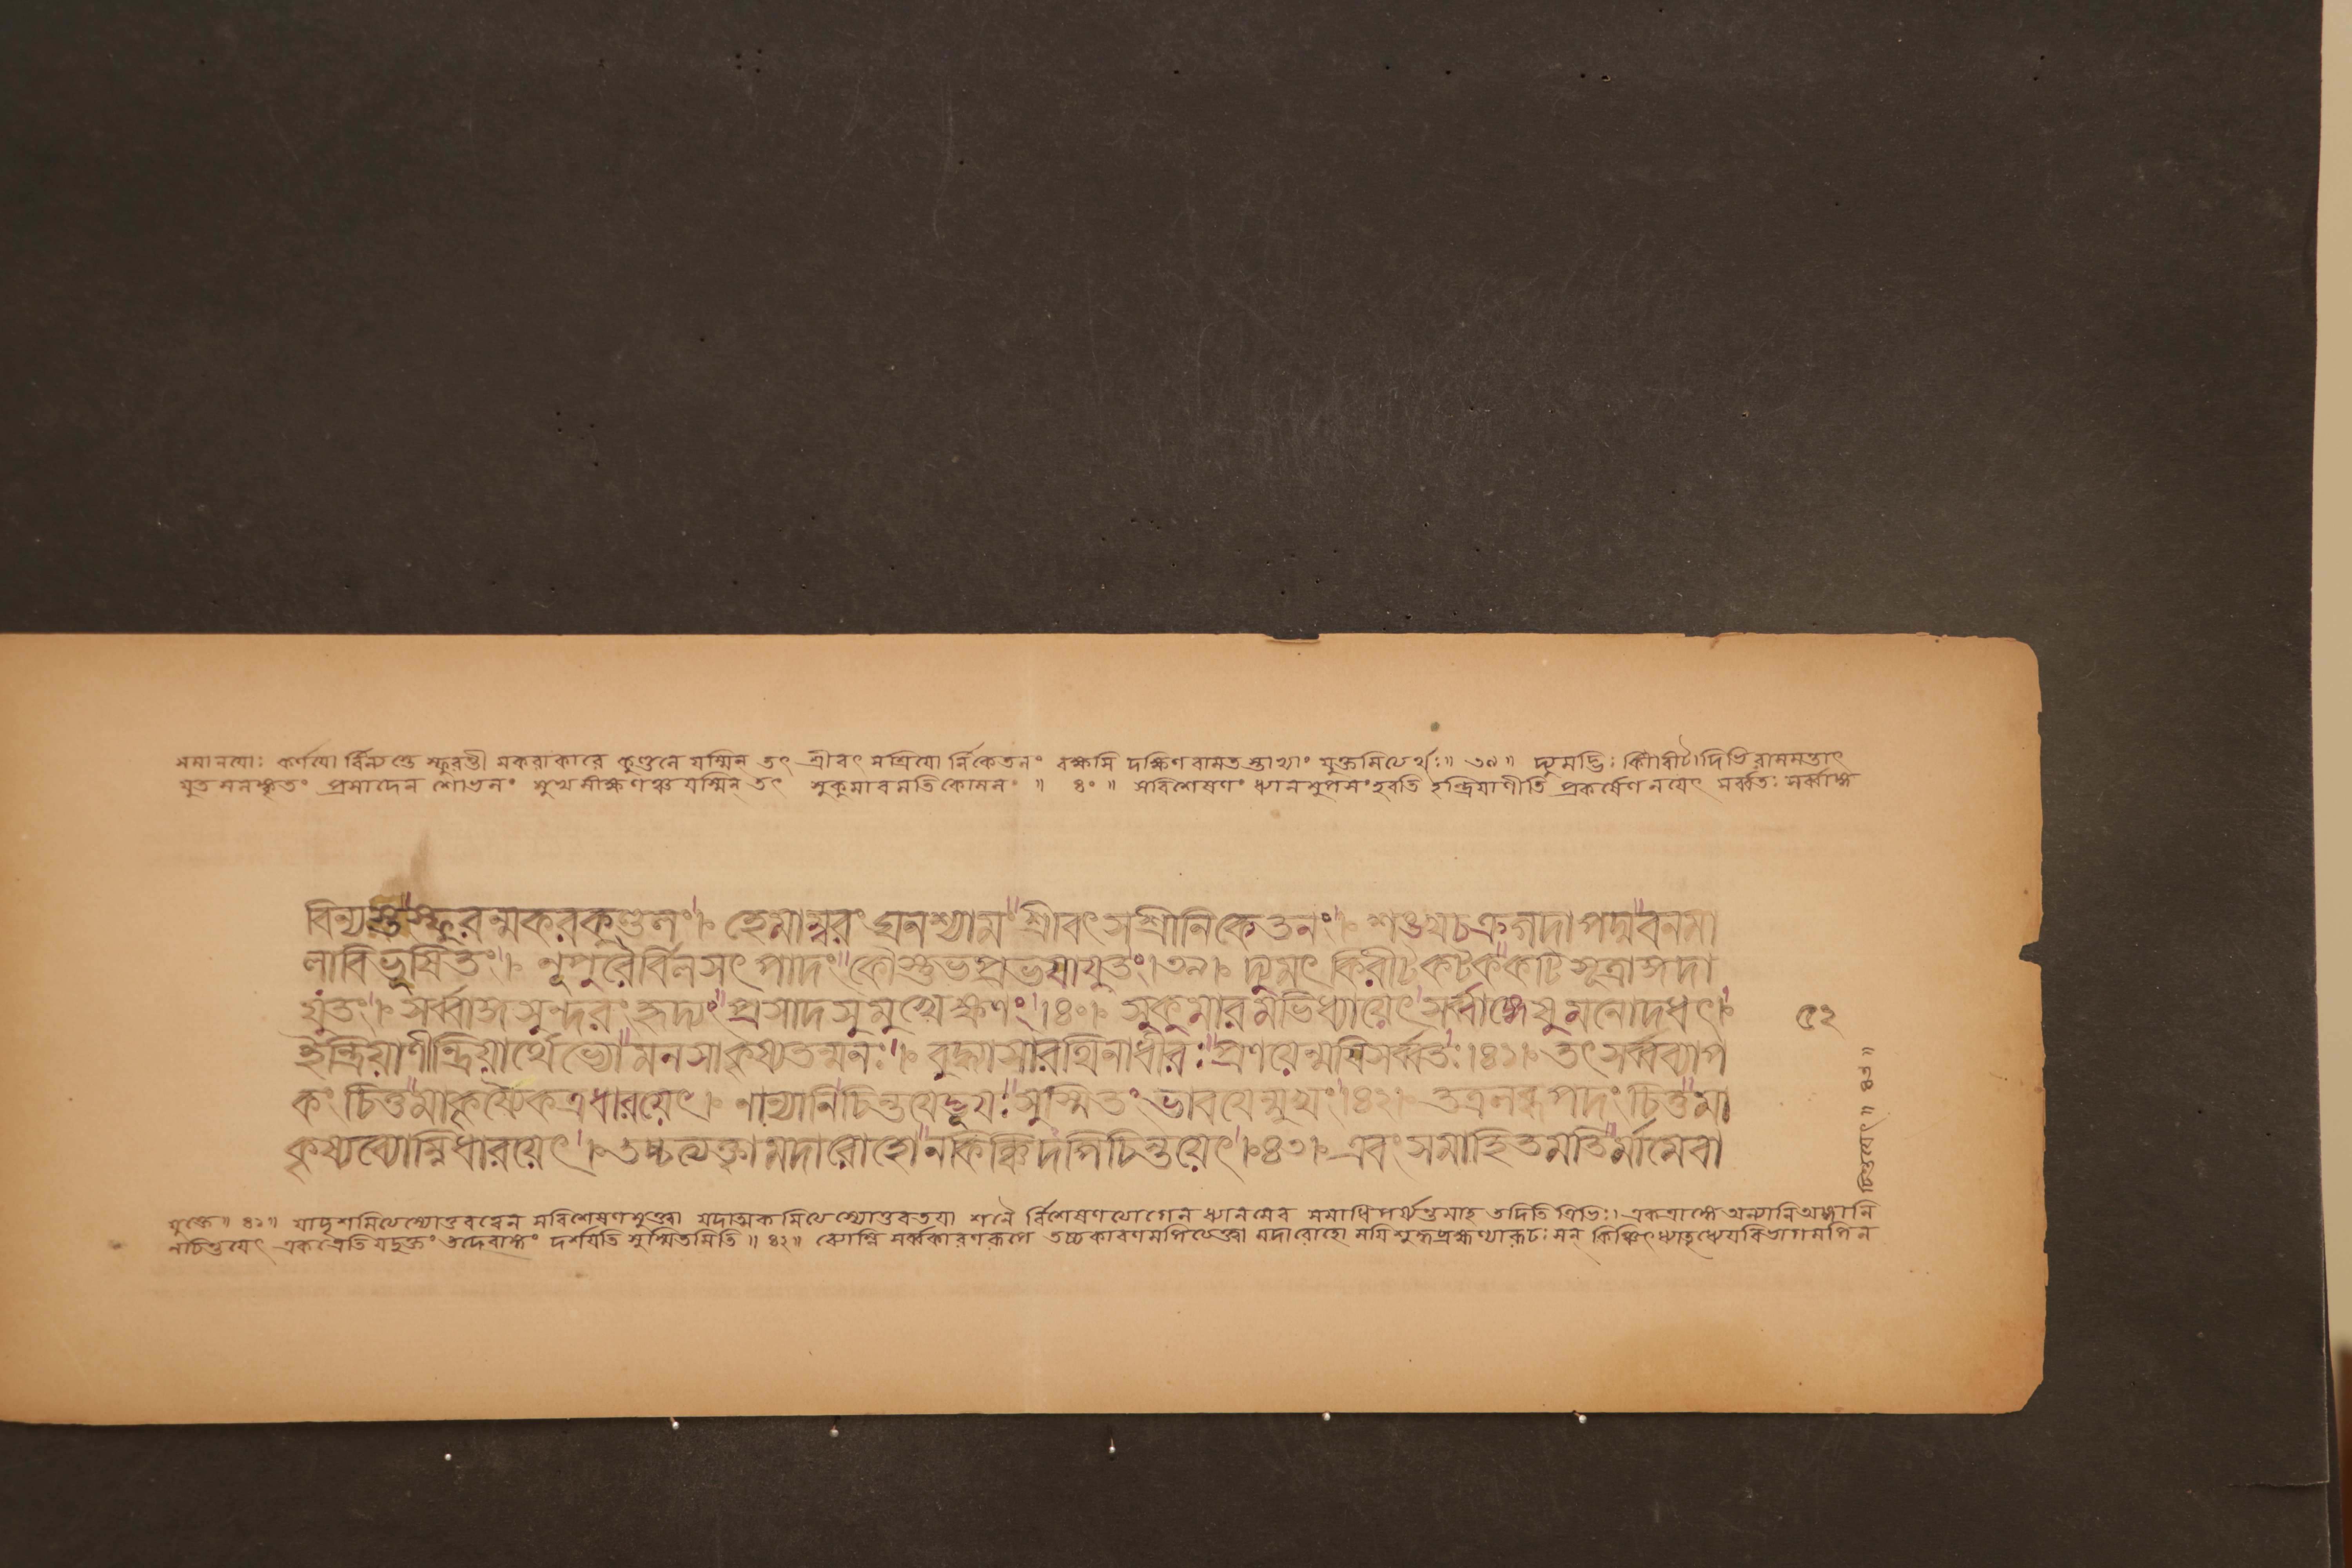 সমানয়োঃ কর্ণয়ো র্বিন্যস্তে স্ফুরন্তী মকরাকারে কুণ্ডলে যস্মিন্ তৎ শ্রীবৎ সশ্রিয়ো র্নিকেতনং বক্ষসি দক্ষিণ বামত স্তাভ্যাং যুক্তমিত্যের্থঃ॥ ৩৯॥ দ্যুমদ্ভিঃ কিরীটাদিভি রাসমন্তাৎ
যুত মলঙ্কৃতং প্রসাদেন শোভনং মুখ মীক্ষণঞ্চ যস্মিন্ তৎ সুকুমার মতি কোমলং ॥ ৪০ ॥ সবিশেষণং ধ্যান মুপসংহরতি ইন্দ্রিয়াণীতি প্রকর্ষেণ নয়েৎ সর্ব্বতঃ সর্ব্বাঙ্গ
বিন্যস্তস্ফুরন্মকরকুণ্ডলং। হেমাম্বরং ঘনশ্যামং শ্রীবৎসশ্রীনিকেতনং। শঙ্খচক্রগদাপদ্মবনমা
লাবিভূষিতং। নূপুরৈর্বিলসৎ পাদং কৌস্তুভপ্রভয়াযুতং।৩৯। দ্যুমৎ কিরীটকটককটিসূত্রাঙ্গদা
যুতং। সর্ব্বাঙ্গসুন্দরং হৃদ্যং প্রসাদসুমুখেক্ষণং।৪০। সুকুমারমভিধ্যায়েৎ সর্ব্বাঙ্গেষু মনোদধৎ।
৫২
ইন্দ্রিয়াণীন্দ্রিয়ার্থেভ্যো মনসাকৃষ্যতন্মনঃ। বুদ্ধ্যাসারথিনাধীরঃ প্রণয়েন্ময়িসর্ব্বতঃ।৪১। তৎসর্ব্বব্যাপ
কং চিত্তমাকৃষ্যৈকত্রধারয়েৎ। নান্যানিচিন্তয়েদ্ভূয়ঃ সুস্মিতং ভাবয়েন্মুখং।৪২। তত্রলব্ধপদং চিত্তমা
কৃষ্যব্যোম্নিধারয়েৎ। তচ্চত্যক্ত্বামদারোহোনকিঞ্চিদপিচিন্তয়েৎ।৪৩। এবংসমাহিতমতির্মামেবা
যুক্তে॥ ৪১॥ যাদৃশমিত্যেশ্যোত্তরত্বেন সবিশেষণমুক্ত্বা যদাত্মকমিত্যেশ্যোত্তরতয়া শনৈ র্বিশেষণত্যাগেন ধ্যানমেব সমাধিপর্য্যন্তমাহ তদিতি ত্রিভিঃ। একত্রাঙ্গে অন্যানিঅঙ্গানি
নচিন্তয়েৎ একত্রেতি যদুক্তং তদেবাঙ্গং দর্শয়তি সুস্মিতমিতি॥ ৪২॥ ব্যোম্নি সর্ব্বকারণরূপে তচ্চকারণমপিত্যেক্ত্বা মদারোহো ময়ি শুদ্ধব্রহ্মণ্যারূঢ়ঃ সন্ কিঞ্চিৎ ধ্যাতৃধ্যেয়বিভাগমপি ন
চিন্তয়েৎ॥ ৪৩॥